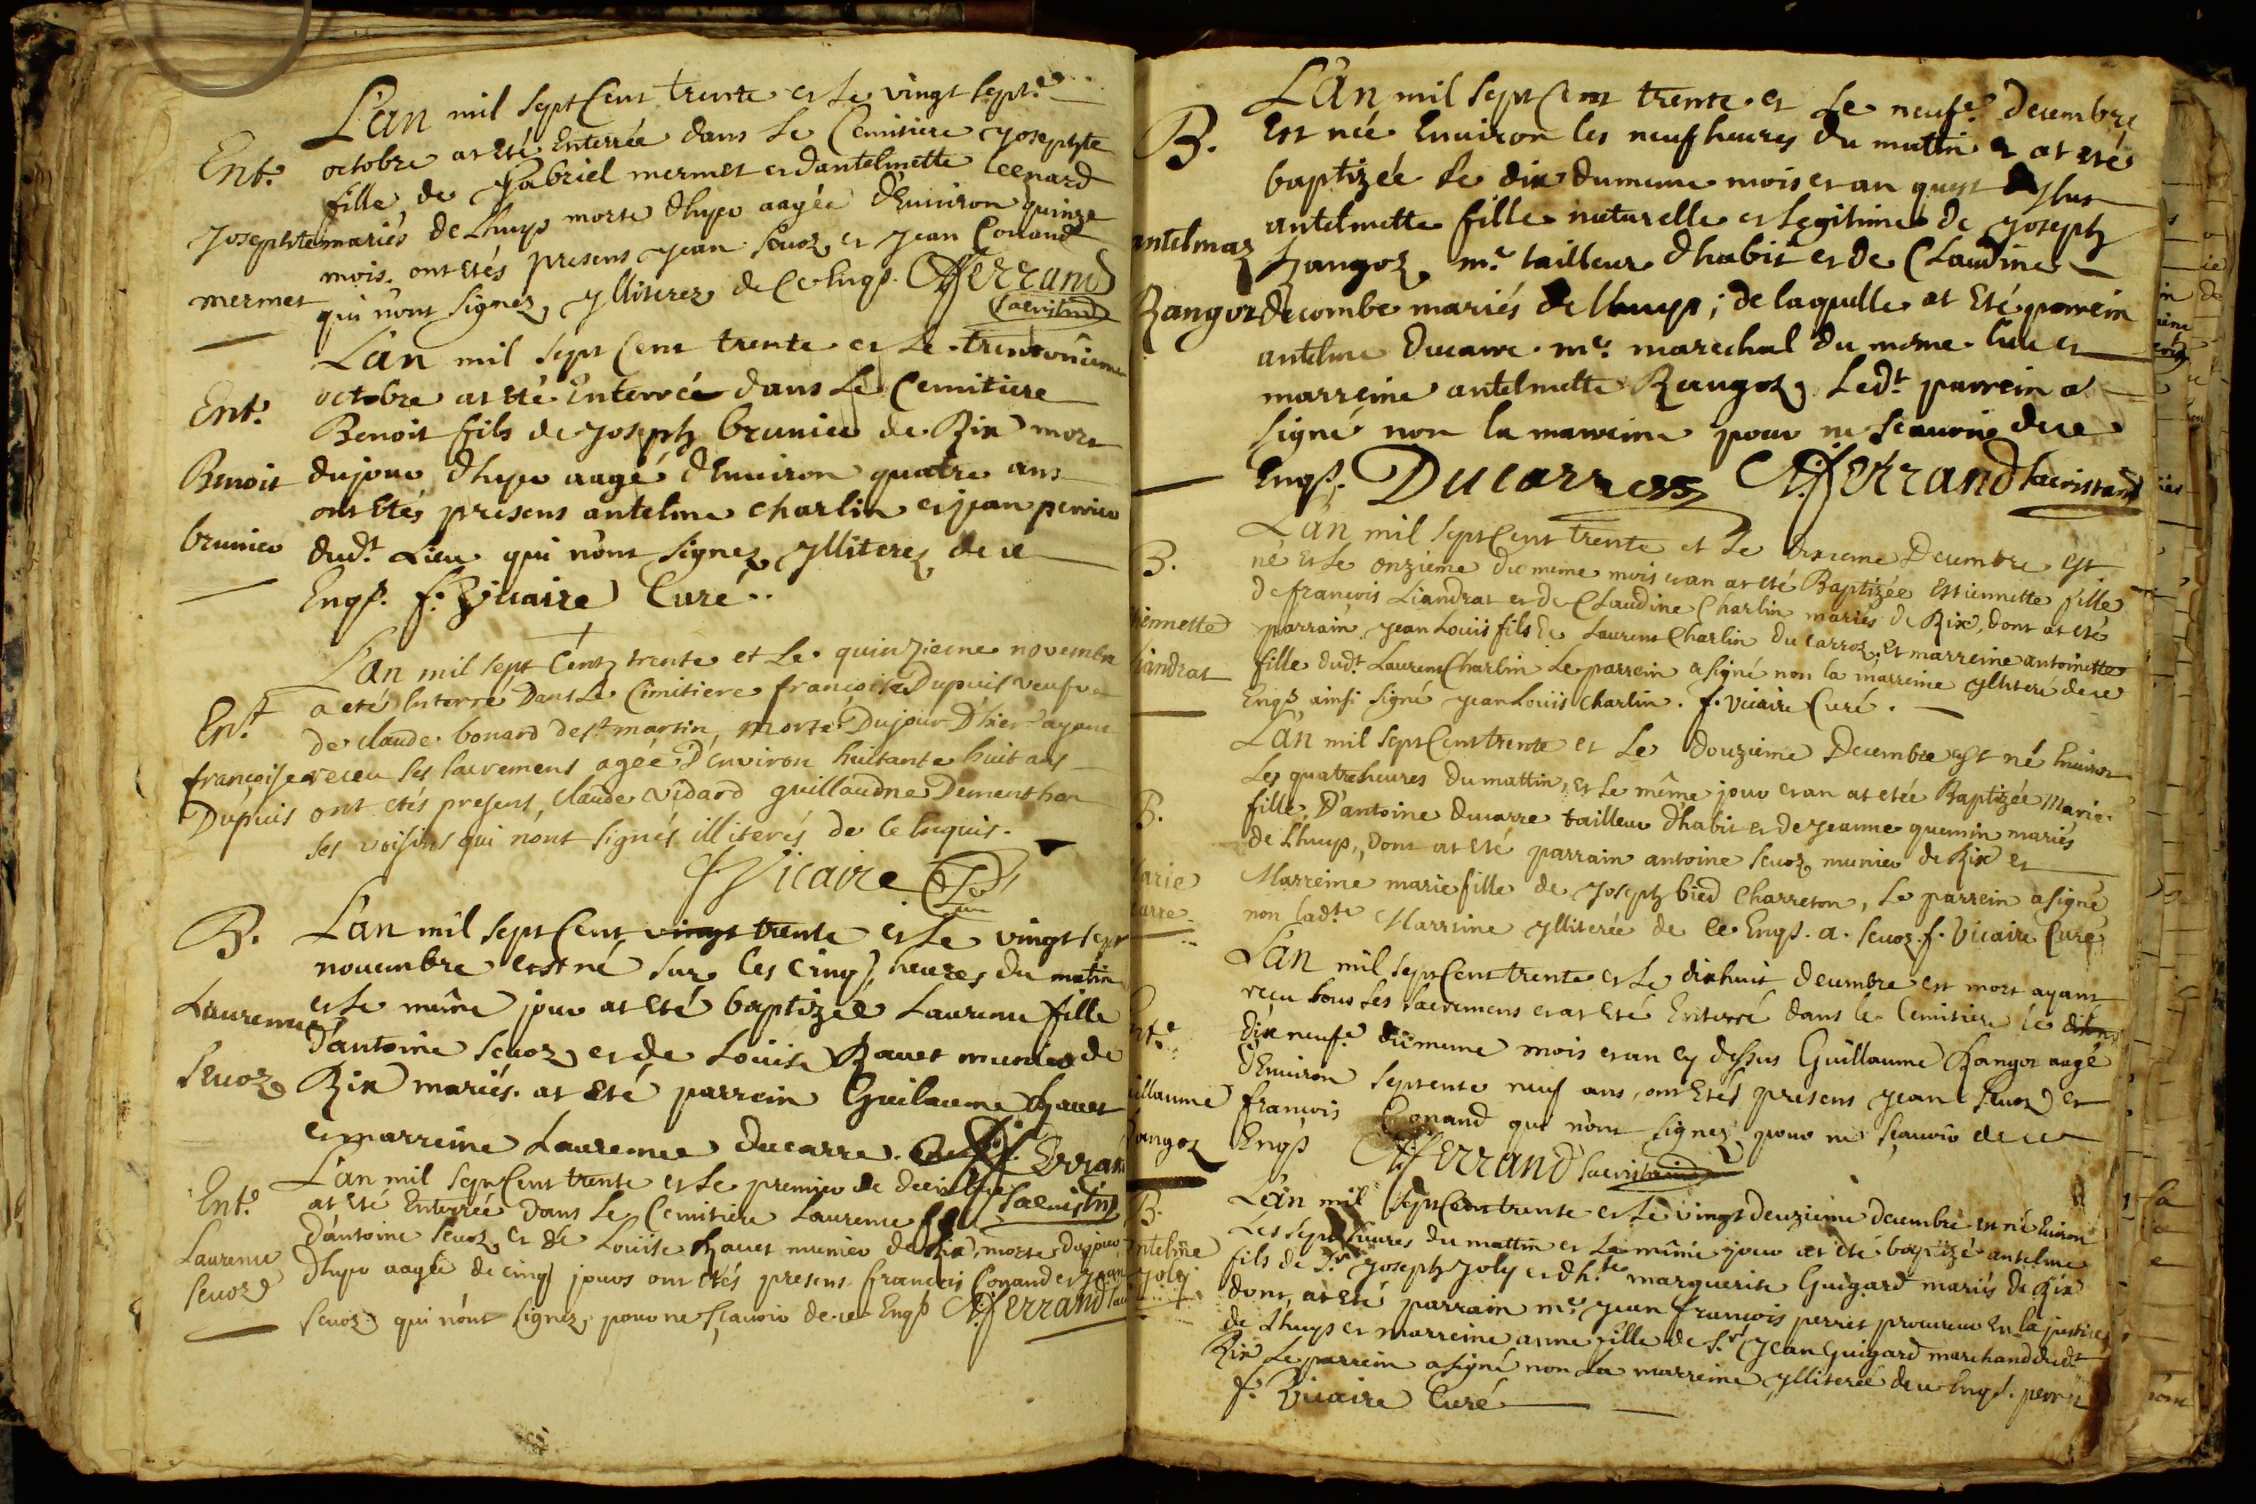 L'an mil sept Cent trente et Le vingt sept.e
Ent.e octobre at eté Enterrée dans Le Cemitiere Josephte
fille de Gabriel mermet et dantelmette Leenard
Josephte mariés de Lhuys morte dhyer aagée d'Environ quinze
mois. ont etés presens Jean Sevoz et Jean Conand
mermet qui n'ont signez ylliterez de Ce Enqs. Ferrand
Sacristain
L'an mil sept Cent trente et Le trentunieme
Ent.e octobre at eté Enterrée dans Le Cemitiere
Benoit fils de Joseph brunier de Rix mort
Benoit dujour dhyer aagé dEnviron quatre ans
ont Etés presens antelme charlin et jean perrier
brunier dud.t Lieu qui n'ont signez ylliterez de ce
Enqs. f. Vicaire Curé..
L'an mil sept Cent trente et Le quinzieme novembre
Ent. a eté Enterré Dans Le Cimitiere françoise Dupuis veufve
de claude bonard de st. martin, morte Dujour D'hier ayant
françoise receu ses sacremens agée D'environ huitante huit ans
Dupuis ont etés presens, claude vidard guillaudne Dementhon
ses voisins qui n'ont signés illiterés de ce Enquis.
f. Vicaire Curé
B. L'an mil sept Cent vingt trente et Le vingt sept
novembre est né sur les cinq heures du matin
et Le même jour at eté baptizée Laurence fille
Laurence d'antoine Sevoz et de Louise Ravet munier de
Sevoz Rix mariés. at eté parrein Guilaume Ravet
et marreine Laurence ducarre. Ferrand
L'an mil sept Cent trente et Le premier de decembre Sacristain
Ent.e at eté Enterrée dans Le Cemitiere Laurence fille
Laurence d'antoine Sevoz et de Louise Ravet munier de Rix, morte dujour
Sevoz dhyer aagée de cinq jours ont etés presens francois Conand et jean
Sevoz qui n'ont signez, pour ne sçavoir de ce Enqs Ferrand
L'An mil sept Cent trente et Le neuf.e decembre
B. Est née Environ les neuf heures du matin et at eté
baptizée Le dix du meme mois et an que dessus
antelmette fille naturelle et legitime de Joseph
antelmaz Rangoz m.e tailleur dhabit et de Claudine
Rangoz decombe mariés de Lhuys; de laquelle at Eté parrein
antelme Ducarre m.e marechal du mesme lieu et
marreine antelmette Rangoz Led.t parrein a
signé non la marreine pour ne sçavoir de ce
Enqs. Ducarre Ferrand Sacristain
L'an mil sept Cent trente et Le dixieme Decembre est
B. né et Le onzieme du meme mois et an at eté Baptizée Estiennette fille
de francois Liandrat et de Claudine Charlin mariés de Rix, dont at eté
tiennette parrain Jean Louis fils de Laurent Charlin du carroz, et marreine antoinette
Liandrat fille dud.t Laurent Charlin Le parrein a signé non la marreine ylliteré de ce
Enqs ainsi signé Jean Louis Charlin. f. Vicaire Curé.
L'an mil sept Cent trente et Le douzieme Decembre est né Environ
Les quatre heures du mattin, et Le même jour et an at etée Baptizée Marie
B. fille, D'antoine ducarre tailleur d'habit et de Jeanne quemin mariés
de Lhuys, Dont at eté parrain antoine Sevoz munier de Rix et
Marie Marreine marie fille de Joseph bied Charreton, Le parrein a signé
carre non lad.te Marreine ylliterée de Ce Enqs. a. Sevoz. f. Vicaire Curé
L'an mil sept Cent trente et Le dixhuit decembre est mort ayant
reçu tous Les sacremens et at eté Enterré dans le Cemitiere Le
nt.e dix neuf.e du meme mois et an cy dessus Guillaume Rangoz aagé
d'Environ septente neuf ans, ont Etés presens Jean Sevoz et
illaume francois Conand qui n'ont signez pour ne sçavoir de ce
angoz Enqs Ferrand Sacristain
L'an mil sept Cent trente et Le vingt deuzieme decembre est né Environ
B. Les sept heures du mattin et Le même jour at eté baptizé antelme
ntelme fils de S.r Joseph Joly et d'h.te marguerite Guigard mariés de Rix
Joly dont, at eté parrain m.e Jean francois perret procureur En la justice
de Lhuys et marreine anne fille de S.r Jean Guigard marchand dud.t
Rix Le parrein a signé non La marreine ylliterée de ce Enqs. perret
f. Vicaire Curé